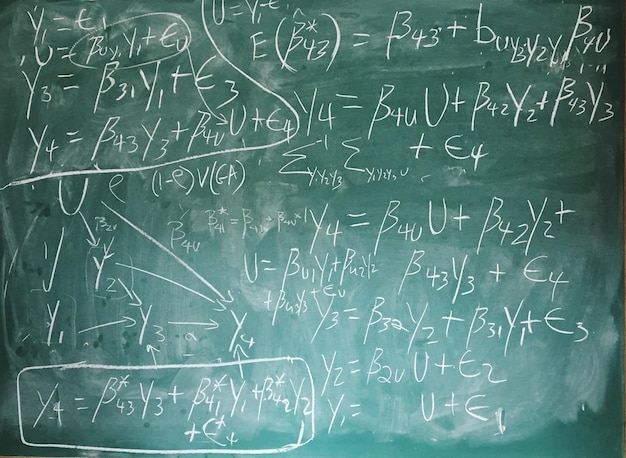 Y₁ = ε
U = β_UY₁ Y₁ + ε_U
Y₃ = β₃₁Y₁ + ε₃
Y₄ = β₄₃Y₃ + β₄U U + ε₄
U = Y₁-ε
E(β̂*₄₃) = β₄₃ + b_UY₃Y₂Y₁ β₄U
Y₄ = β₄U U + β₄₂Y₂ + β₄₃Y₃
+ ε₄
Σ⁻¹_Y₁Y₂Y₃ Σ_Y₁Y₂Y₃U
e (1-e)V(εA)
U
β₂U
Y₂
Y₁ → Y₃ → Y₄
β₄U
Y₄ = β₄U U + β₄₂Y₂ +
β₄₃Y₃ + ε₄
U = β_U1 Y₁ + β_U2 Y₂
+ β_U3 Y₃ + ε_U
Y₃ = β₃₂Y₂ + β₃₁Y₁ + ε₃
Y₂ = β₂U U + ε₂
Y₁ = U + ε₁
Y₄ = β*₄₃Y₃ + β*₄₁Y₁ + β*₄₂Y₂
+ ε*₄